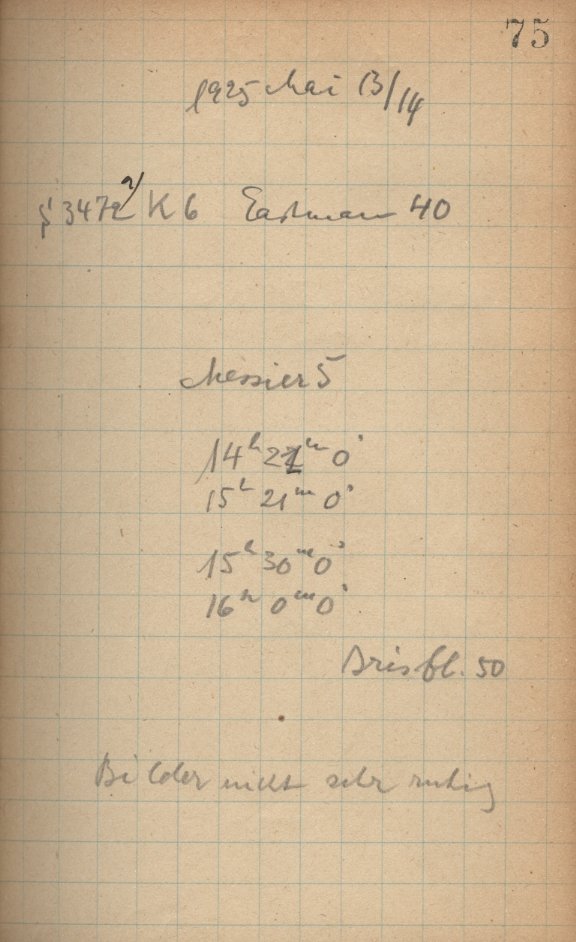 75
1925 Mai 13/14
3472 a) K 6 Eastman 40
Messier 5
14ʰ 21ᵐ 0ˢ
15ʰ 21ᵐ 0ˢ
15ʰ 30ᵐ 0ˢ
16ʰ 0ᵐ 0ˢ
Irisbl. 50
Bilder nicht sehr ruhig